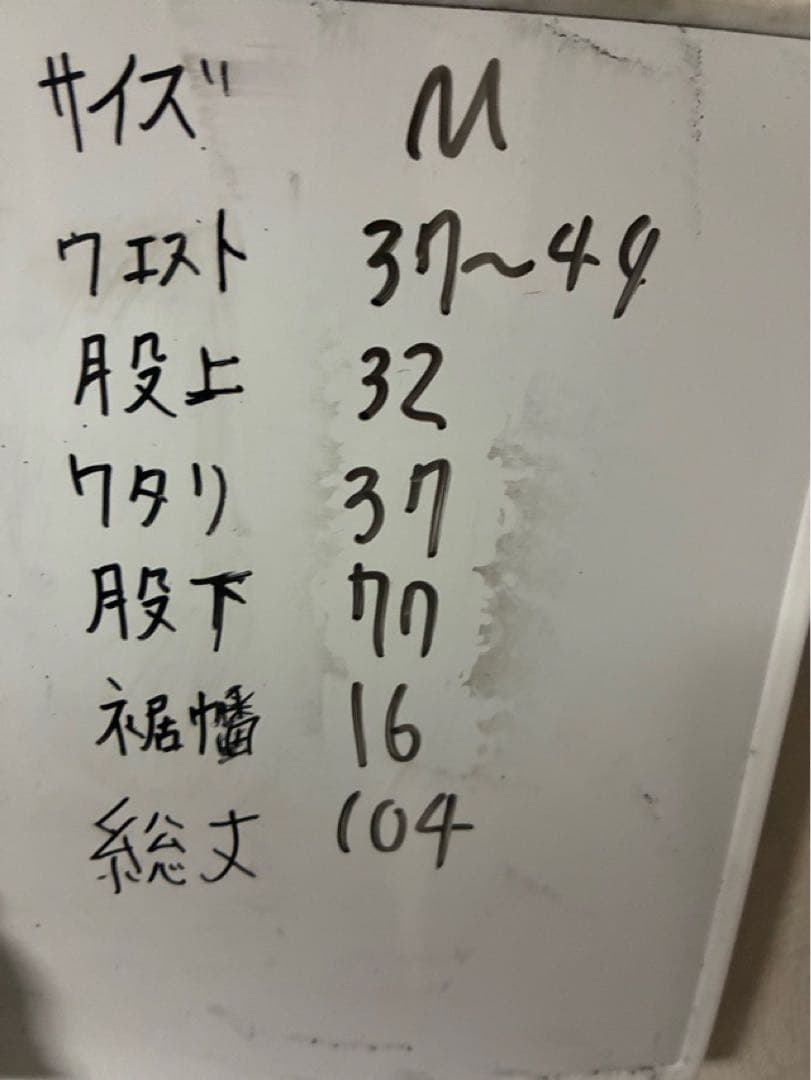 サイズ M
ウエスト 37〜44
股上 32
ワタリ 37
股下 77
裾幡 16
総丈 104